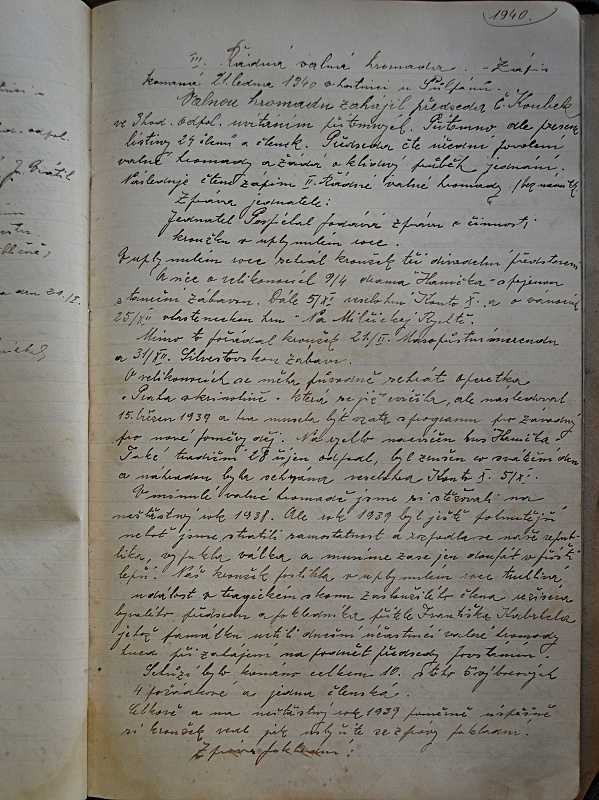 1940.
III. Řádná valná hromada. - Zápis
konaná 21. ledna 1940 v hostinci u Půlpánů.
Valnou hromadu zahájil předseda č. Koubek
ve 3 hod. odpol. uvítáním přítomných. Přítomno dle presen.
listiny 24 členů a členek. Předseda čte úřední povolení
valné hromady a žádá o klidný průběh jednání.
Následuje čtení zápisu II. řádné valné hromady /bez námitek.
Zpráva jednatele:
Jednatel Pospíchal podává zprávu o činnosti
kroužku v uplynulém roce.
V uplynulém roce sehrál kroužek tři divadelní představení
A sice o velikonocích 9/4 drama "Hanička" spojenou
s taneční zábavou. Dále 5/XI veselohru "Konto X." a o vánocích
25/XII vlasteneckou hru "Na Milčické rychtě.
Mimo to pořádal kroužek 21/II. Masopustní merendu
a 31/XII. Silvestrovskou zábavu.
O velikonocích se měla původně sehrát opereta
"Praha v krinolíně" - která se již cvičila, ale následoval
15. březen 1939 a hra musela být vzata s programu pro závadný
pro nové poměry děj. Na rychlo nacvičen kus Hanička -
Také tradiční 28 říjen odpadl, byl zrušen co sváteční den
a náhradou byla sehrána veselohra Konto X. 5/XI.
V minulé valné hromadě jsme si stěžovali na
nešťastný rok 1938. Ale rok 1939 byl ještě smutnější
neboť jsme ztratili samostatnost a rozpadla se naše republika,
vypukla válka a musíme zase jen doufat v příští
lepší. Náš kroužek postihla v uplynulém roce truchlivá
událost v tragickém skonu zasloužilého člena režiséra
bývalého předsedy a pokladníka přítele Františka Habrchela
jehož památku uctili dnešní účastníci valné hromady
hned při zahájení na podnět předsedy povstáním
Schůzí bylo konáno celkem 10. z toho 5 výborových
4 pořádkové a jedna členská.
Celkově a na nešťastný rok 1939 poměrně úspěšně
si kroužek vedl jak uslyšíte ze zprávy pokladní.
Zpráva pokladní: